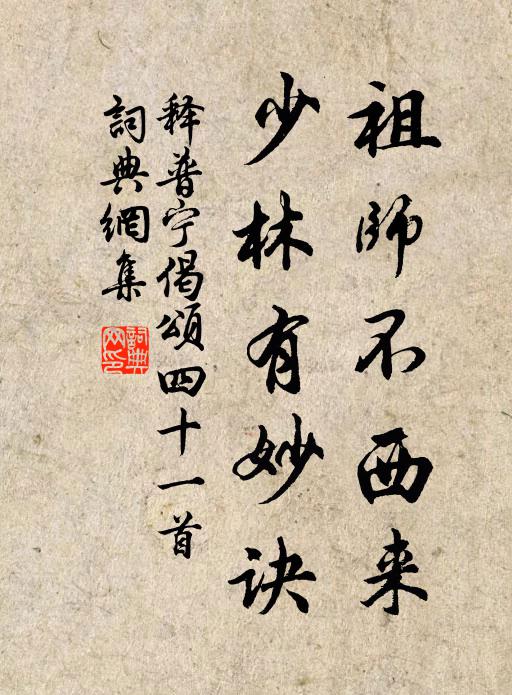 祖师不西来
少林有妙诀
释普宁偈颂四十一首
词典網集
詞典網印